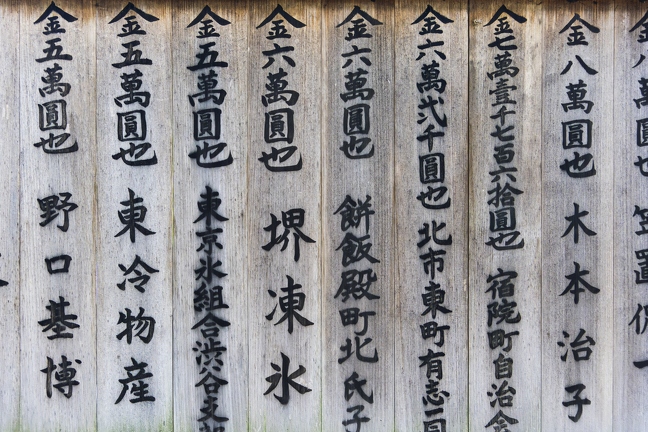 八萬圓也 笠置保
金八萬圓也 木本治子
金七萬壹千七百六拾圓也 宿院町自治会
金六萬弐千圓也 北市東町有志一同
金六萬圓也 餅飯殿町北氏子
金六萬圓也 堺凍氷
金五萬圓也 東京氷組合渋谷支部
金五萬圓也 東冷物産
金五萬圓也 野口基博